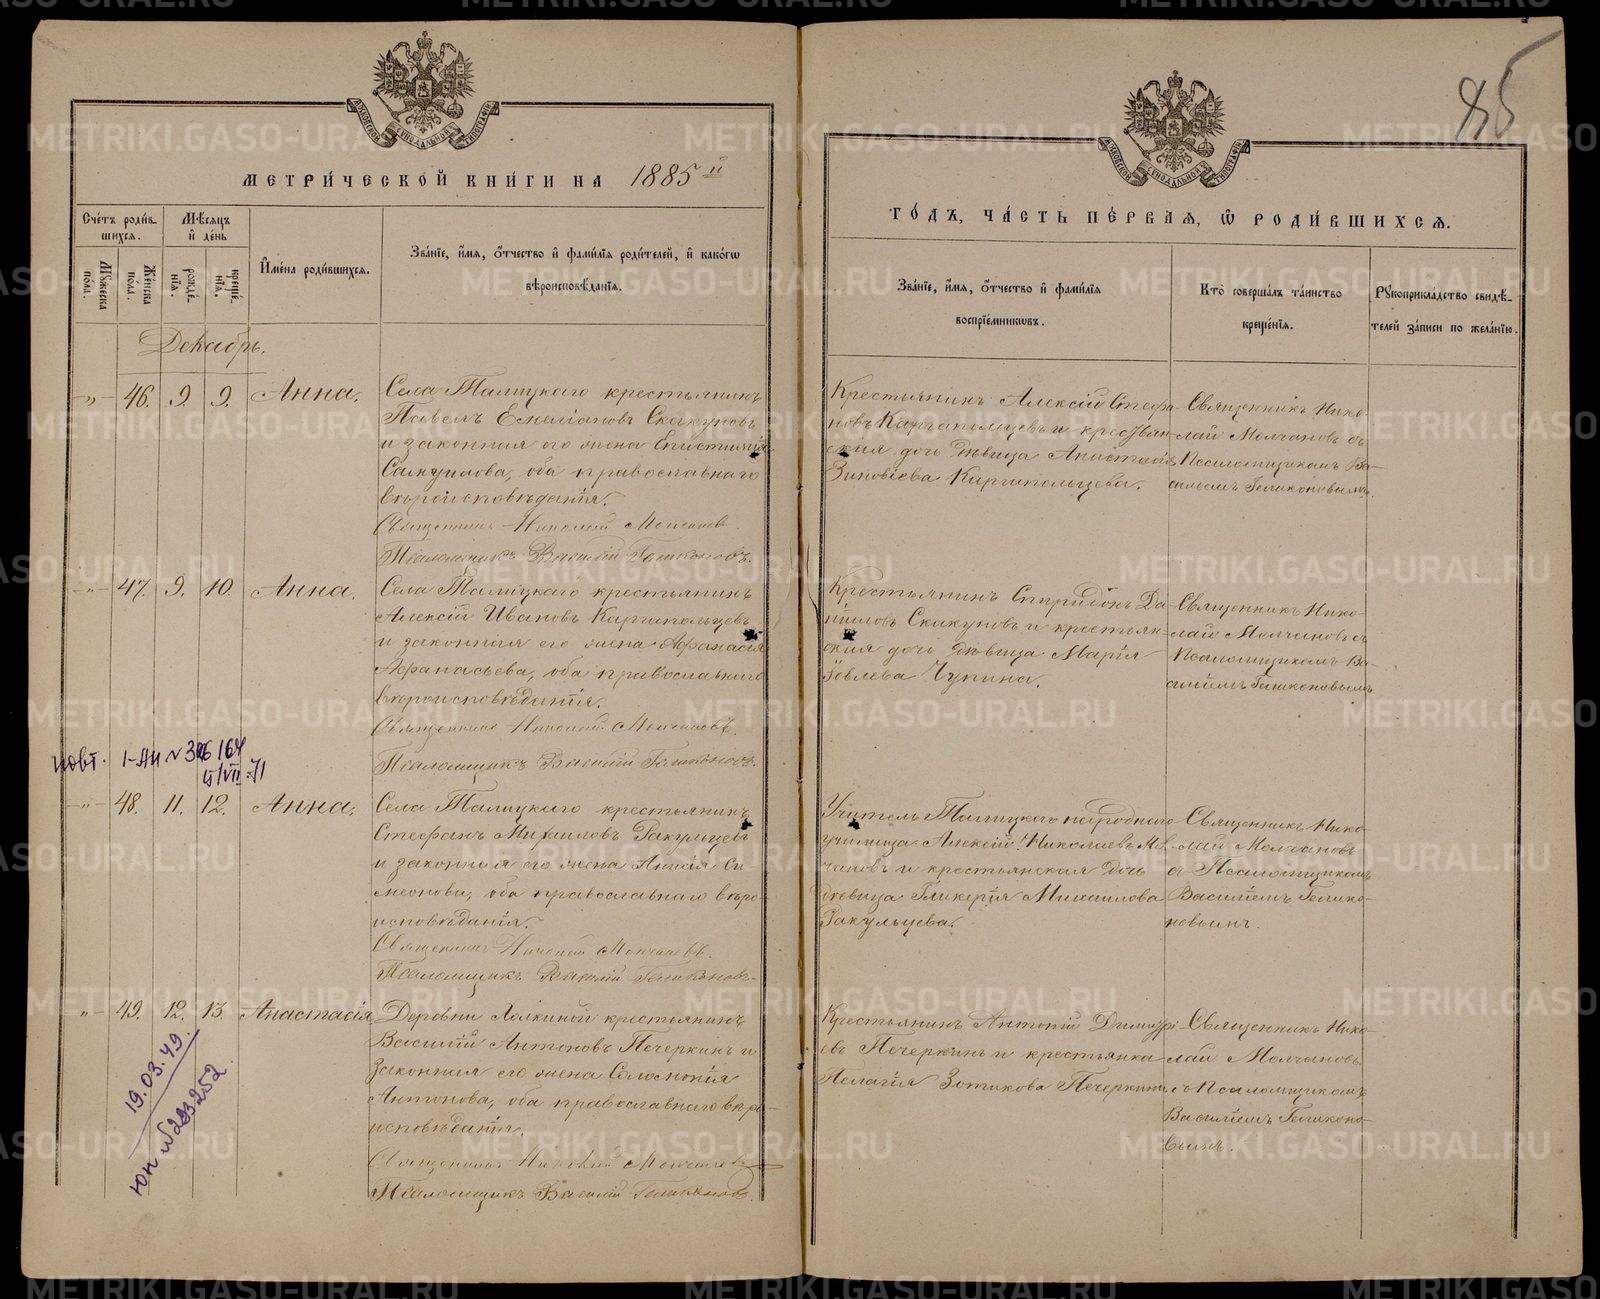 МЕТРИ́ЧЕСКОЙ КНИ́ГИ НА 1885й
Сче́тъ роди́вшихся.
Мѣ́сяцъ и҆ де́нь
Мꙋ́жеска по́ла.
Же́нска по́ла.
рожде́нїя.
креще́нїя.
И҆мена̀ роди́вшихся.
Зва́нїе, и҆́мя, ѻ҆́тчество и҆ фами́лїя роди́телей, и҆ како́гѡ вѣроисповѣ́данїя.
Декабрь.
-"- 46. 9. 9. Анна.
Села Талицкаго крестьянинъ
Павелъ Емелїановъ Скакуновъ
и законная его жена Епистимїя
оба православнаго
вѣроисповѣданїя.
Священникъ Николай Молчановъ.
Псаломщикъ Василїй Геликоновъ.
-"- 47. 9. 10. Анна.
Села Талицкаго крестьянинъ
Алексїй Ивановъ Каргапольцевъ
и законная его жена Афанасїя
Афанасьева, оба православнаго
вѣроисповѣданїя.
Священникъ Николай Молчановъ.
Псаломщикъ Василїй Геликоновъ.
повт. I-АИ № 306164
VII-71
-"- 48. 11. 12. Анна.
Села Талицкаго крестьянинъ
Стефанъ Михаиловъ Закульцевъ
и законная его жена Аннїя Си-
меонова, оба православнаго вѣро-
исповѣданїя.
Священникъ Николай Молчановъ.
Псаломщикъ Василїй Геликоновъ.
-"- 49. 12. 13. Анастасїя.
Деревни Холкиной крестьянинъ
Василїй Антоновъ Печеркинъ и
законная его жена Соломонїя
Антонова, оба православнаго вѣро-
исповѣданїя.
Священникъ Николай Молчановъ
Псаломщикъ Василїй Геликоновъ.
19.03.49
ЮН №283252
85
ГО́ДЪ, ЧА́СТЬ ПЕ́РВАЯ, Ѡ҆ РОДИ́ВШИХСЯ.
Зва́нїе, и҆́мя, ѻ҆́тчество и҆ фами́лїя воспрїе́мникѡвъ.
Кто̀ соверша́лъ та́инство креще́нїя.
Рꙋкоприкла́дство свидѣ́телей за́писи по жела́нїю.
Крестьянинъ Алексїй Стефа-
новъ Каргапольцевъ и крестьян-
ская дочь дѣвица Анастасїя
Зиновїева Каргапольцева.
Священникъ Нико-
лай Молчановъ съ
Псаломщикомъ Ва-
сильемъ Геликоновымъ.
Крестьянинъ Спиридонъ Да-
нїиловъ Скакуновъ и крестьян-
ская дочь дѣвица Марїя
Їовлева Чупина.
Священникъ Нико-
лай Молчановъ съ
Псаломщикомъ Ва-
силїемъ Геликоновымъ
Учитель Талицкаго народнаго
училища Алексїй Николаевъ Мол-
чановъ и крестьянская дочь
дѣвица Гликерїя Михаилова
Закульцева.
Священникъ Нико-
лай Молчановъ
съ Псаломщикомъ
Василїемъ Гелико-
новымъ.
Крестьянинъ Антонїй Димитрї-
евъ Печеркинъ и крестьянка
Пелагїя Зотикова Печеркина
Священникъ Нико-
лай Молчановъ
съ Псаломщикомъ
Василїемъ Геликоно-
вымъ.
METRIKI.GASO-URAL.RU